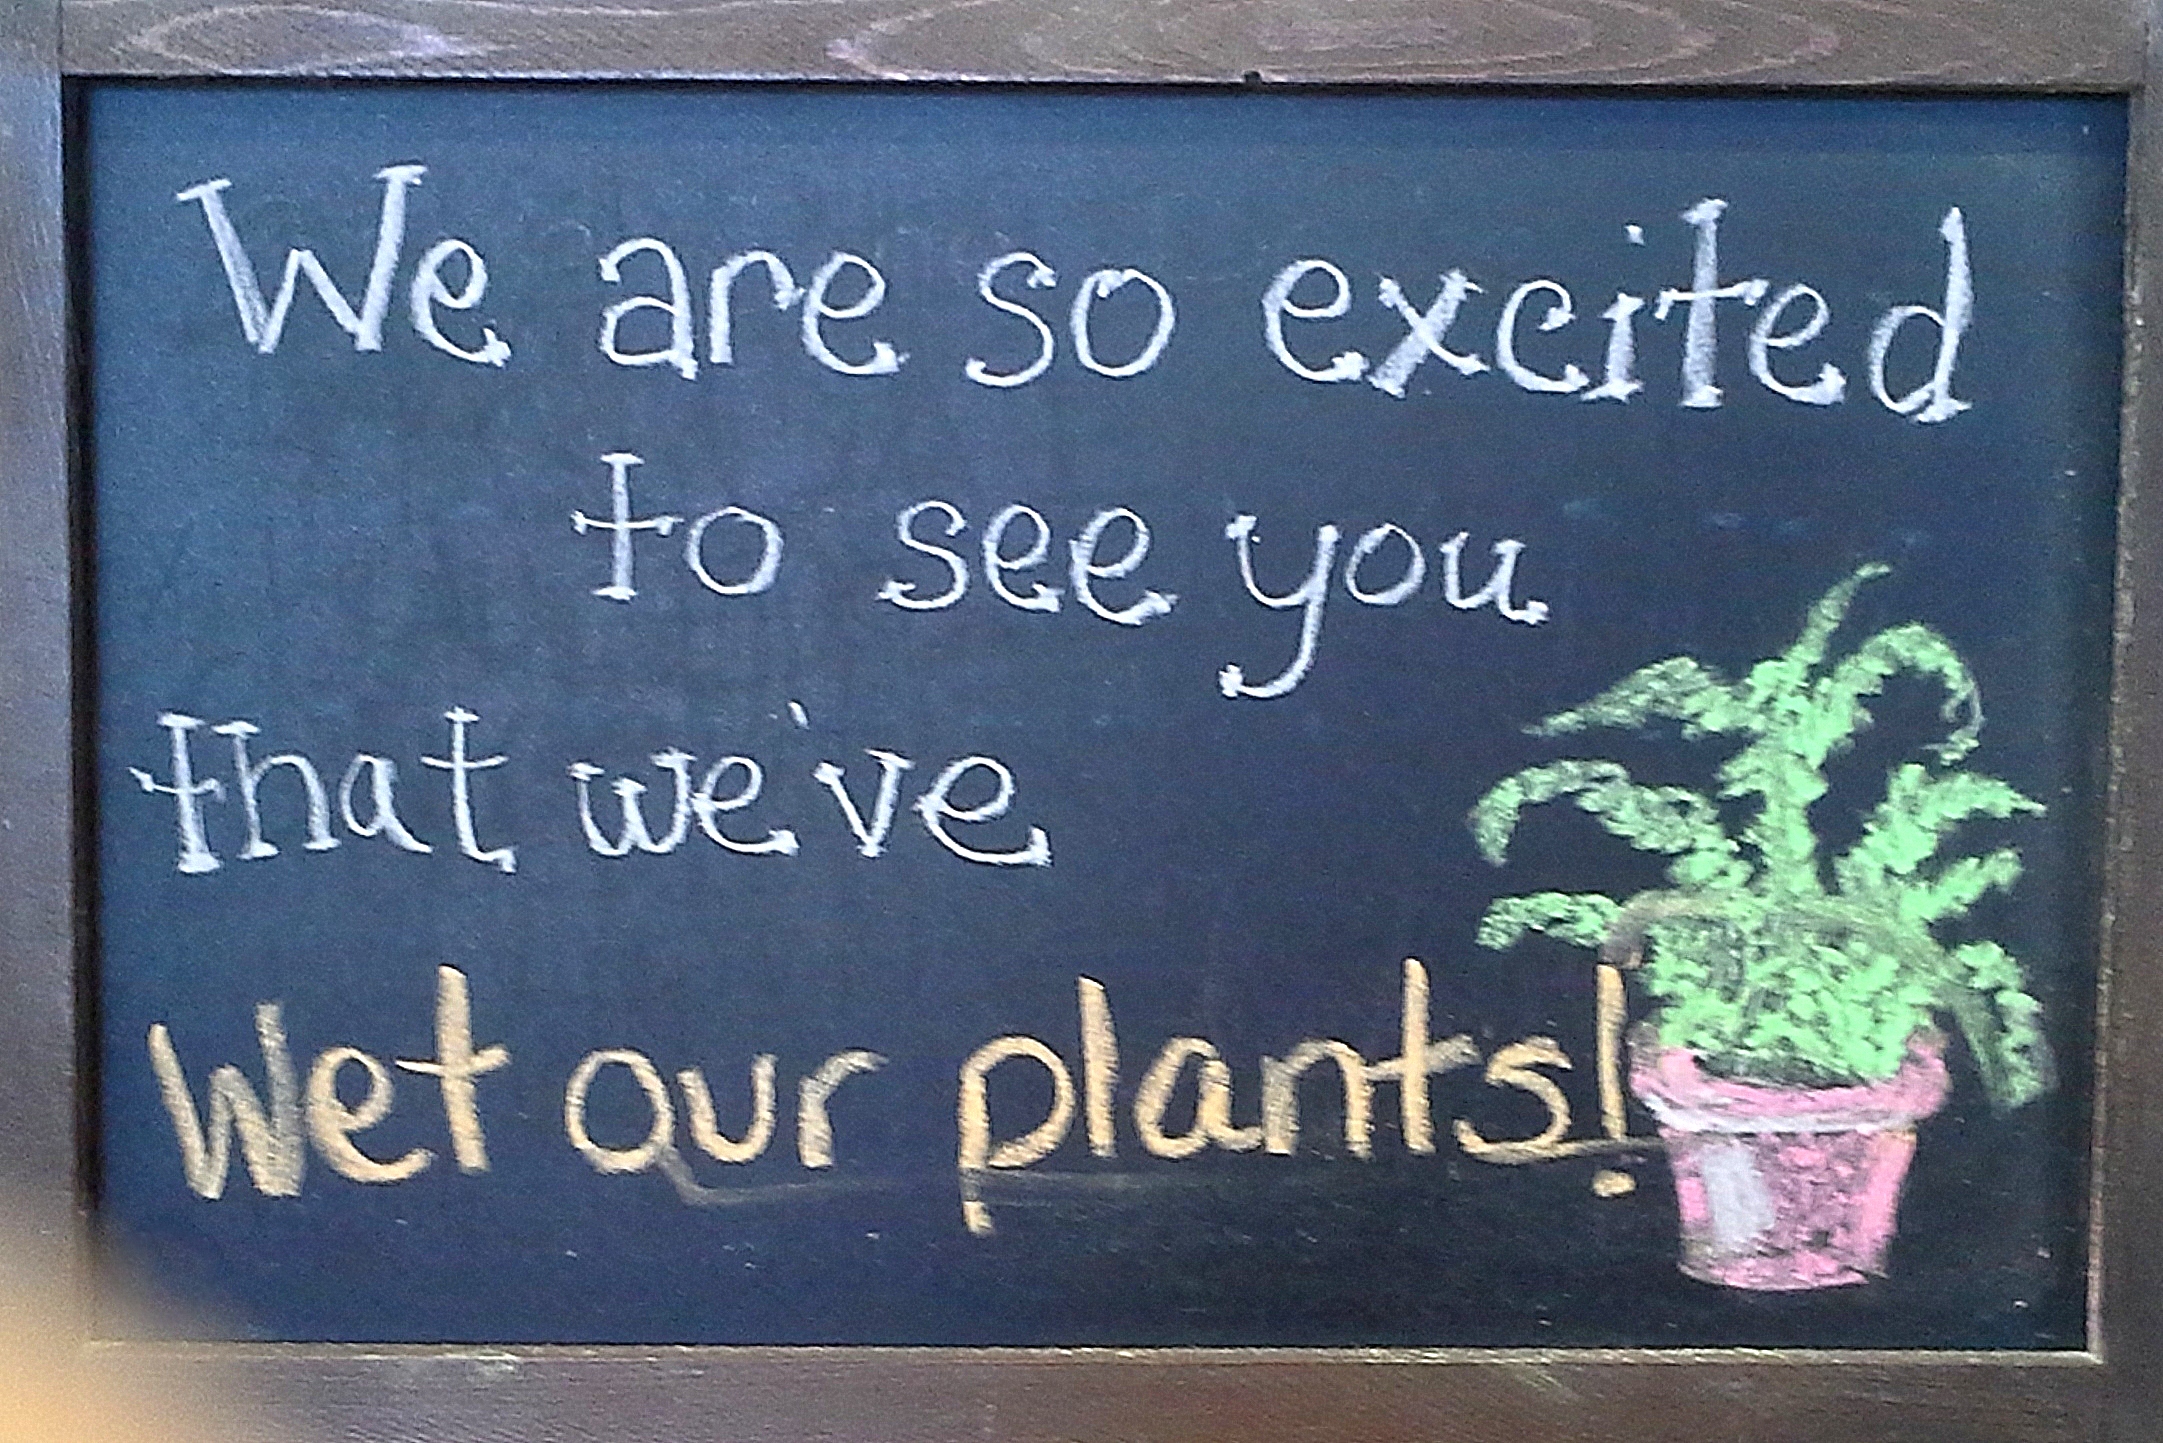 We are so excited
to see you
that we've
Wet our plants!